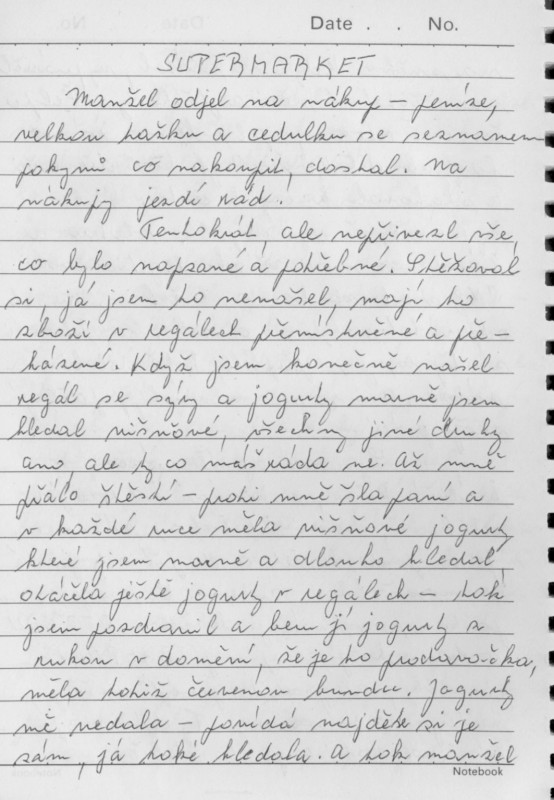 Date . . No.
SUPERMARKET
Manžel odjel na nákup – peníze,
velkou tašku a cedulku se seznamem
pokynů co nakoupit, dostal. Na
nákupy jezdí rád.
Tentokrát, ale nepřivezl vše,
co bylo napsané a potřebné. Stěžoval
si, já jsem to nenašel, mají to
zboží v regálech přemístněné a pře-
házené. Když jsem konečně našel
regál se sýry a jogurty marně jsem
hledal višňové, všechny jiné druhy
ano, ale ty co máš ráda ne. Až mně
přálo štěstí – proti mně šla paní a
v každé ruce měla višňové jogurty
které jsem marně a dlouho hledal,
otáčela ještě jogurty v regálech – tak
jsem pozdravil a beru jí jogurty z
rukou v domění, že je to prodavačka,
měla totiž červenou bundu. Jogurty
mě nedala – povídá najděte si je
sám, já také hledala. A tak manžel
Notebook